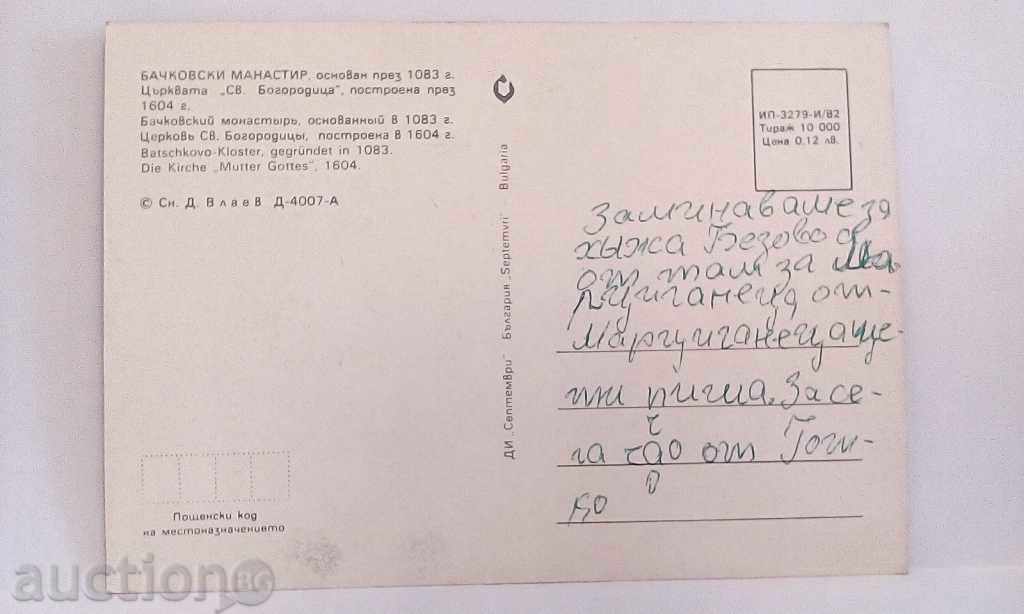 БАЧКОВСКИ МАНАСТИР, основан през 1083 г.
Църквата „Св. Богородица", построена през
1604 г.
Бачковский монастырь, основанный в 1083 г.
Церковь Св. Богородицы, построена в 1604 г.
Batschkovo-Kloster, gegründet in 1083.
Die Kirche „Mutter Gottes", 1604.
© Сн. Д. Влаев Д-4007-А
Пощенски код
на местоназначението
ДИ „Септември" България „Septemvri" - Bulgaria
ИП-3279-И/82
Тираж 10 000
Цена 0,12 лв.
Заминаваме за
хыжа Безово
от там за Ма
рциганеца от-
Марциганеца ще
ти пиша. За се-
га чао от Гош-
ко
auction BG